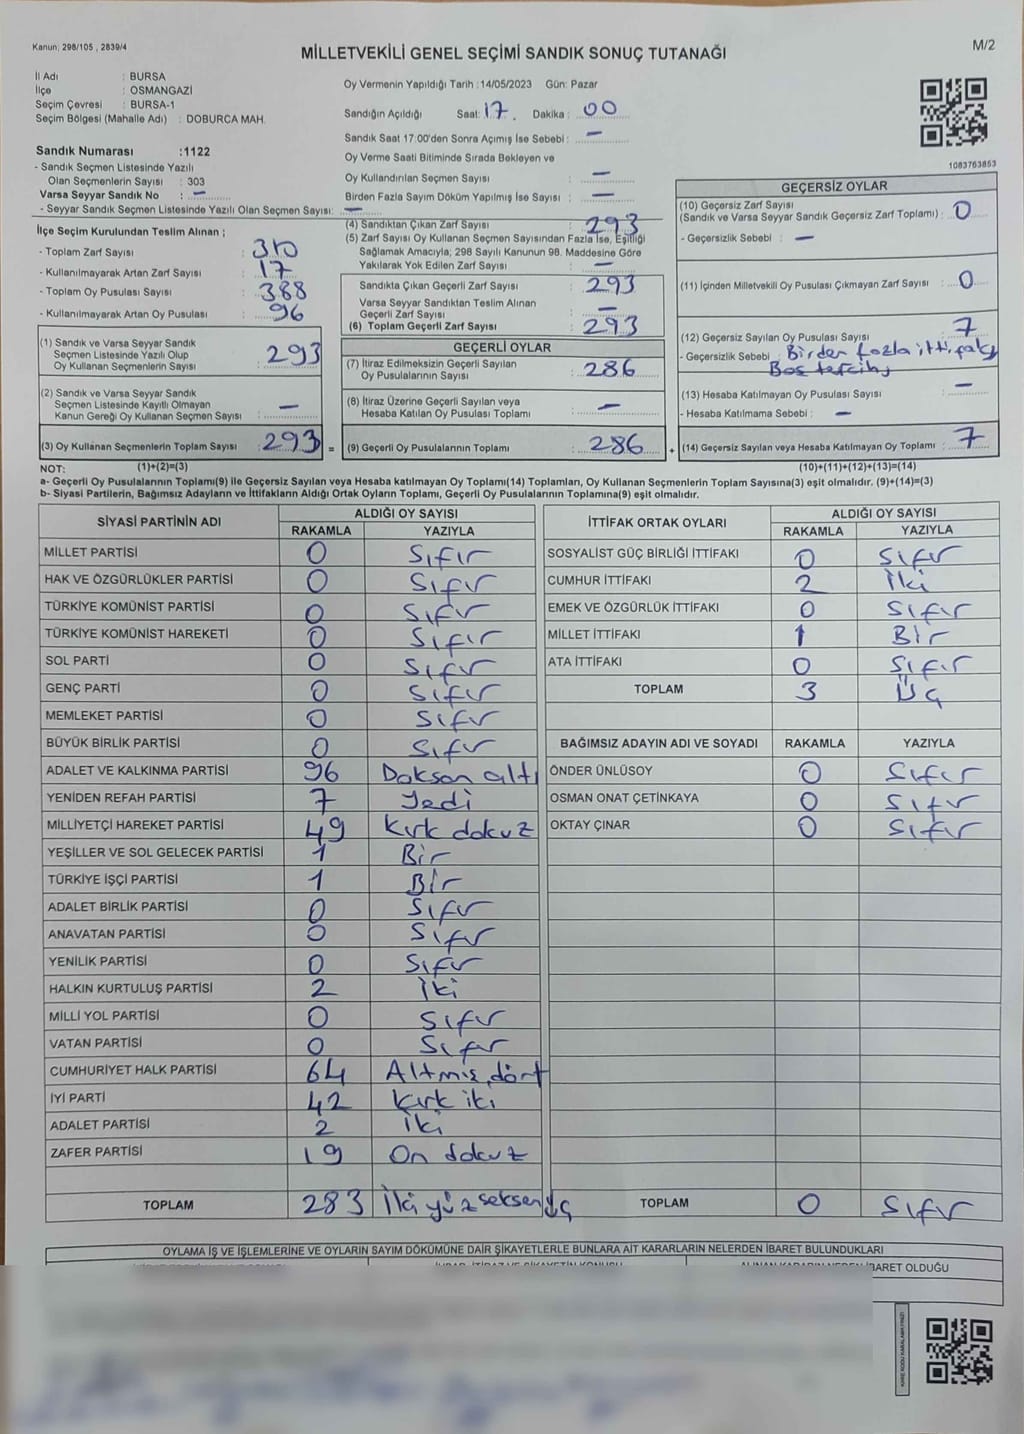 Kanun; 298/105 , 2839/4
MİLLETVEKİLİ GENEL SEÇİMİ SANDIK SONUÇ TUTANAĞI
M/2
İl Adı : BURSA
İlçe : OSMANGAZİ
Seçim Çevresi : BURSA-1
Seçim Bölgesi (Mahalle Adı) : DOBURCA MAH.
Oy Vermenin Yapıldığı Tarih : 14/05/2023 Gün: Pazar
Sandığın Açıldığı Saat: 17 Dakika : 00
Sandık Saat 17:00'den Sonra Açımış İse Sebebi : –
Oy Verme Saati Bitiminde Sırada Bekleyen ve
Oy Kullandırılan Seçmen Sayısı : –
Birden Fazla Sayım Döküm Yapılmış İse Sayısı : –
1083763853
Sandık Numarası :1122
- Sandık Seçmen Listesinde Yazılı
Olan Seçmenlerin Sayısı : 303
Varsa Seyyar Sandık No : –
- Seyyar Sandık Seçmen Listesinde Yazılı Olan Seçmen Sayısı: –
İlçe Seçim Kurulundan Teslim Alınan ;
- Toplam Zarf Sayısı : 310
- Kullanılmayarak Artan Zarf Sayısı : 17
- Toplam Oy Pusulası Sayısı : 388
- Kullanılmayarak Artan Oy Pusulası : 96
(1) Sandık ve Varsa Seyyar Sandık
Seçmen Listesinde Yazılı Olup
Oy Kullanan Seçmenlerin Sayısı : 293
(2) Sandık ve Varsa Seyyar Sandık
Seçmen Listesinde Kayıtlı Olmayan
Kanun Gereği Oy Kullanan Seçmen Sayısı : –
(3) Oy Kullanan Seçmenlerin Toplam Sayısı : 293 =
(4) Sandıktan Çıkan Zarf Sayısı : 293
(5) Zarf Sayısı Oy Kullanan Seçmen Sayısından Fazla İse, Eşitliği
Sağlamak Amacıyla; 298 Sayılı Kanunun 98. Maddesine Göre
Yakılarak Yok Edilen Zarf Sayısı : –
Sandıkta Çıkan Geçerli Zarf Sayısı : 293
Varsa Seyyar Sandıktan Teslim Alınan
Geçerli Zarf Sayısı : –
(6) Toplam Geçerli Zarf Sayısı : 293
GEÇERLİ OYLAR
(7) İtiraz Edilmeksizin Geçerli Sayılan
Oy Pusulalarının Sayısı : 286
(8) İtiraz Üzerine Geçerli Sayılan veya
Hesaba Katılan Oy Pusulası Toplamı : –
(9) Geçerli Oy Pusulalarının Toplamı : 286 +
GEÇERSİZ OYLAR
(10) Geçersiz Zarf Sayısı
(Sandık ve Varsa Seyyar Sandık Geçersiz Zarf Toplamı) : 0
- Geçersizlik Sebebi : –
(11) İçinden Milletvekili Oy Pusulası Çıkmayan Zarf Sayısı : 0
(12) Geçersiz Sayılan Oy Pusulası Sayısı : 7
- Geçersizlik Sebebi : Birden fazla
Boş
(13) Hesaba Katılmayan Oy Pusulası Sayısı : –
- Hesaba Katılmama Sebebi : –
(14) Geçersiz Sayılan veya Hesaba Katılmayan Oy Toplamı : 7
NOT: (1)+(2)=(3) (10)+(11)+(12)+(13)=(14)
a- Geçerli Oy Pusulasının Toplamı(9) ile Geçersiz Sayılan veya Hesaba katılmayan Oy Toplamı(14) Toplamları, Oy Kullanan Seçmenlerin Toplam Sayısına(3) eşit olmalıdır. (9)+(14)=(3)
b- Siyasi Partilerin, Bağımsız Adayların ve İttifakların Aldığı Ortak Oyların Toplamı, Geçerli Oy Pusulalarının Toplamına(9) eşit olmalıdır.
SİYASİ PARTİNİN ADI ALDIĞI OY SAYISI
RAKAMLA YAZIYLA
MİLLET PARTİSİ 0 Sıfır
HAK VE ÖZGÜRLÜKLER PARTİSİ 0 Sıfır
TÜRKİYE KOMÜNİST PARTİSİ 0 Sıfır
TÜRKİYE KOMÜNİST HAREKETİ 0 Sıfır
SOL PARTİ 0 Sıfır
GENÇ PARTİ 0 Sıfır
MEMLEKET PARTİSİ 0 Sıfır
BÜYÜK BİRLİK PARTİSİ 0 Sıfır
ADALET VE KALKINMA PARTİSİ 96 Doksan altı
YENİDEN REFAH PARTİSİ 7 Yedi
MİLLİYETÇİ HAREKET PARTİSİ 49 Kırk dokuz
YEŞİLLER VE SOL GELECEK PARTİSİ 1 Bir
TÜRKİYE İŞÇİ PARTİSİ 1 Bir
ADALET BİRLİK PARTİSİ 0 Sıfır
ANAVATAN PARTİSİ 0 Sıfır
YENİLİK PARTİSİ 0 Sıfır
HALKIN KURTULUŞ PARTİSİ 2 İki
MİLLİ YOL PARTİSİ 0 Sıfır
VATAN PARTİSİ 0 Sıfır
CUMHURİYET HALK PARTİSİ 64 Altmış dört
İYİ PARTİ 42 Kırk iki
ADALET PARTİSİ 2 İki
ZAFER PARTİSİ 19 On dokuz
TOPLAM 283 İki yüz seksen üç
İTTİFAK ORTAK OYLARI ALDIĞI OY SAYISI
RAKAMLA YAZIYLA
SOSYALİST GÜÇ BİRLİĞİ İTTİFAKI 0 Sıfır
CUMHUR İTTİFAKI 2 İki
EMEK VE ÖZGÜRLÜK İTTİFAKI 0 Sıfır
MİLLET İTTİFAKI 1 Bir
ATA İTTİFAKI 0 Sıfır
TOPLAM 3 Üç
BAĞIMSIZ ADAYIN ADI VE SOYADI RAKAMLA YAZIYLA
ÖNDER ÜNLÜSOY 0 Sıfır
OSMAN ONAT ÇETİNKAYA 0 Sıfır
OKTAY ÇINAR 0 Sıfır
TOPLAM 0 Sıfır
OYLAMA İŞ VE İŞLEMLERİNE VE OYLARIN SAYIM DÖKÜMÜNE DAİR ŞİKAYETLERLE BUNLARA AİT KARARLARIN NELERDEN İBARET BULUNDUKLARI
OLDUĞU